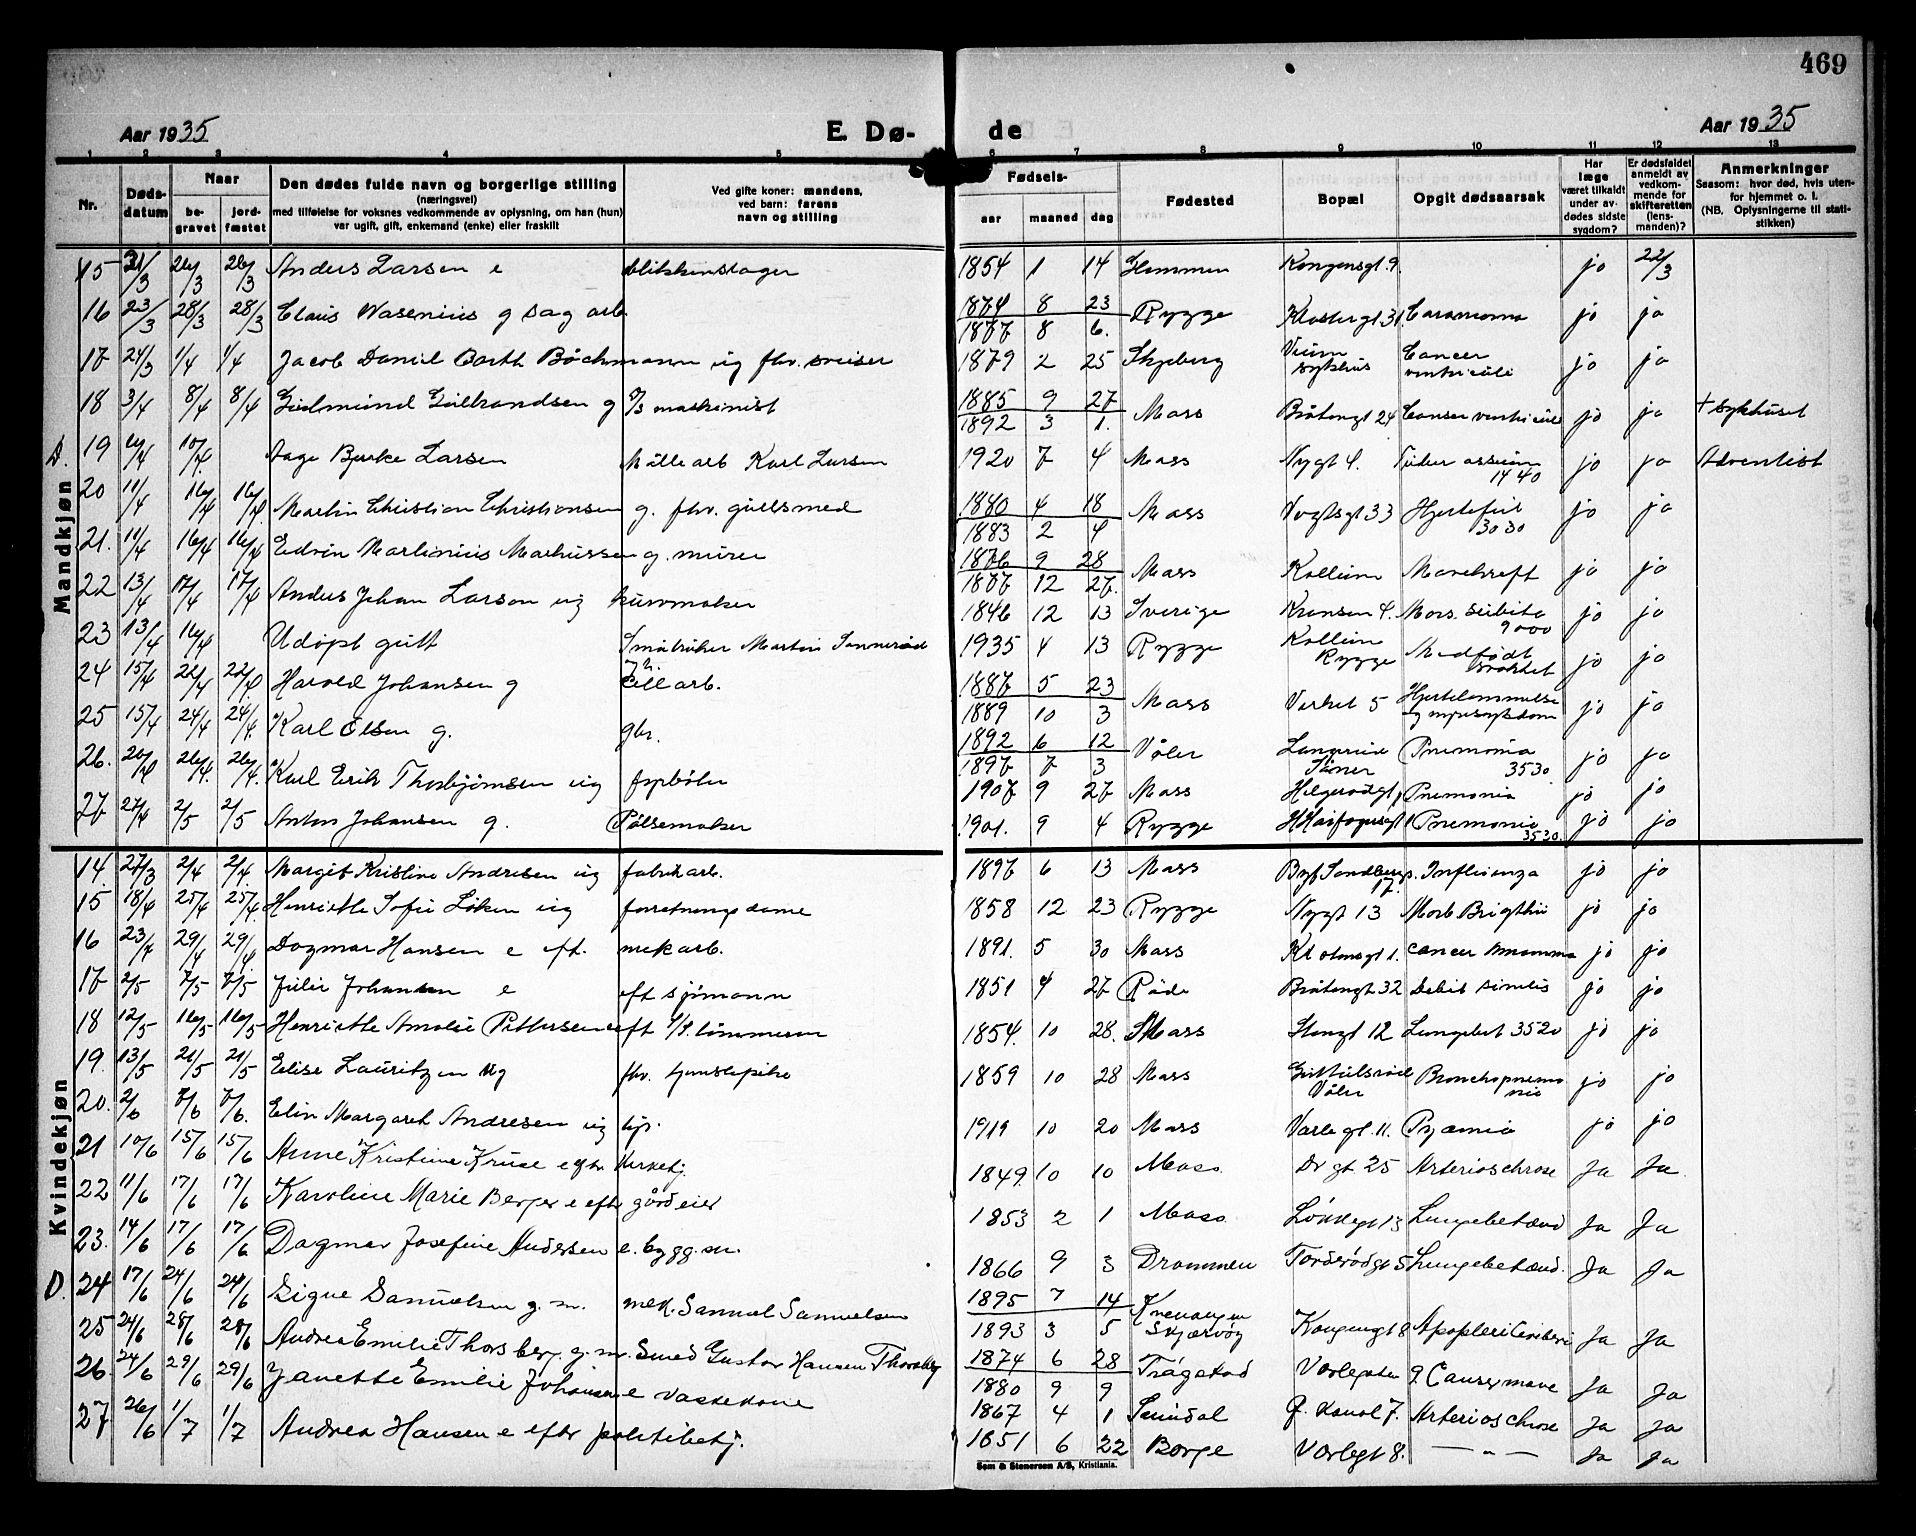 469
Aar 1935
E. Dø-
de
Aar 1935
1 2 3 4 5 6 7 8 9 10 11 12 13
Nr.
Døds-
datum
Naar
be-
gravet
jord-
fæstet
Den dødes fulde navn og borgerlige stilling
(næringsvei)
med tilføielse for voksnes vedkommende av oplysning, om han (hun)
var ugift, gift, enkemand (enke) eller fraskilt
Ved gifte koner: mandens,
ved barn: farens
navn og stilling
Fødsels-
aar maaned dag
Fødested
Bopæl
Opgit dødsaarsak
Har
læge
været tilkaldt
under av-
dødes sidste
sygdom?
Er dødsfaldet
anmeldt av
vedkom-
mende for
skifteretten
(lens-
manden)?
Anmerkninger
Saasom: hvor død, hvis uten-
for hjemmet o. l.
(NB. Oplysningerne til stati-
stikken)
Mandkjøn
15 21/3 26/3 26/3 Anders Larsen e blikkenslager 1854 1 14 Glemmen Kongensgt. 9. jo 22/3
16 23/3 28/3 28/3 Claus Wasenius g sag arb. 1874 8 23 / 1877 8 6. Rygge Klostergt 31. jo jo
17 24/3 1/4 1/4 Jacob Daniel Barth Böchmann ug fhv. sveiser 1879 2 25 Skjeberg Veum sykehus Cancer ventriculi jo jo
18 3/4 8/4 8/4 Gudmund Gulbrandsen g maskinist 1885 9 27 / 1892 3 1. Moss Bråtengt 24 Canser ventricüli jo jo + sykhuset
D. 19 6/4 10/4 Aage Bjerke Larsen Mølle arb Karl Larsen 1920 7 4 Moss Nygt 4. 1440 jo jo Adventist
20 11/4 16/4 16/4. Martin Christian Christiansen g. fhv. gullsmed 1880 4 18 / 1883 2 4 Moss Vogtsgt 33 Hjertefeil 3030 jo jo
21. 11/4 16/4 16/4 Edvin Martinius Markussen g. murer 1876 9 28 / 1877 12 27. Moss Kollum Mavekreft jo jo
22 13/4 17/4 17/4 Anders Johan Larson ug kurvmaker 1846 12 13 Sverige Kransen 4. Mors subita 9000 jo jo
23 13/4 16/4 Udöpt gutt Småbruker Martin Sannerød 1935 4 13 Rygge Kollum Rygge Medfødt jo jo
24 15/4 22/4 22/4. Harald Johansen g Cell arb. 1887 5 23 / 1889 10 3 Moss Verket 5 Hjertelammelse og nyresykdom jo jo
25 15/4 24/4 24/4. Karl Olsen g. gbr. 1892 6 12 / 1897 7 3 Våler Pnemonia 3530 jo jo
26. 20/4 26/4. 26/4. Karl Erik Thorbjörnsen ug fyrbøter 1907 9 27 Moss Pnemonia jo jo
27 27/4 2/5 2/5 Anton Johansen g. Pølsemaker 1901. 9 4 Rygge Pnemonia 3530. jo jo
Kvindekjøn
14 27/3 2/4 2/4 Margit Kristine Andresen ug fabrikarb. 1897 6 13 Moss Byf Sandbergs. 17. Influenza jo jo
15 18/4 25/4 25/4 Henriette Sofie Løken ug forretningsdame 1858 12 23 Rygge Nygt 13 Morb Brigthii jo jo
16 23/4 29/4 29/4 Dagmar Hansen e eft. mek arb. 1891. 5 30 Moss cancer mamma jo jo
17 2/5 7/5 7/5 Julie Johansen e eft sjømann 1851 4 27 Råde Bråtengt 32 Debil similis jo jo
18 12/5 16/5 16/5 Henriette Amalie Pettersen e eft tømmerm 1854. 10 28. Moss Stengt 12 Lungebet 3520 jo jo
19. 13/5 21/5 21/5 Elise Lauritzen ug fhv. tjenstepike 1859 10 28 Moss Våler Bronchopnemonia jo jo
20. 2/6 7/6 7/6. Elin Margaret Andresen ug 1919 10 20 Moss Varlegt. 11. Pyæmia jo jo
21 10/6 15/6 15/6 Anne Kristine Kruse e efter kirketj. 1849. 10 10 Moss Dr gt. 25 Arterioschrose Ja Ja.
22 11/6 17/6 17/6 Karoline Marie Berger e eftr gårdeier 1853 2 1 Moss Løkkegt 13 Lungebetænd Ja Ja
23. 14/6 17/6 17/6 Dagmar Josefine Andersen e. bygg.m. 1866 9 3 Drammen Torderødgt 5 Lungebetænd. Ja Ja
D. 24 17/6 24/6 24/6 Signe Samuelsen g. m. mek. Samuel Samuelsen 1895 7 14 / 1893 3 5 Kvenangen Skjærvøy Kongensgt 8 Ja Ja
25 24/6 28/6 28/6 Andrea Emilie Thorsberg. g. m. Smed Gustav Hansen Thorsberg 1874 6 28 / 1880 9 9 Trøgstad Varlegaten 9. Cancer mave Ja Ja
26. 24/6 29/6 29/6 Janette Emilie Johansen e vaskekone 1867 4 1 G. kanal 7. Arterioschrose Ja Ja
27 26/6 1/7 1/7 Andrea Hansen e eftr politibetj. 1851 6 22 Borge Varlegt 8. — „ — Ja Ja
Som & Stenersen A/S, Kristiania.